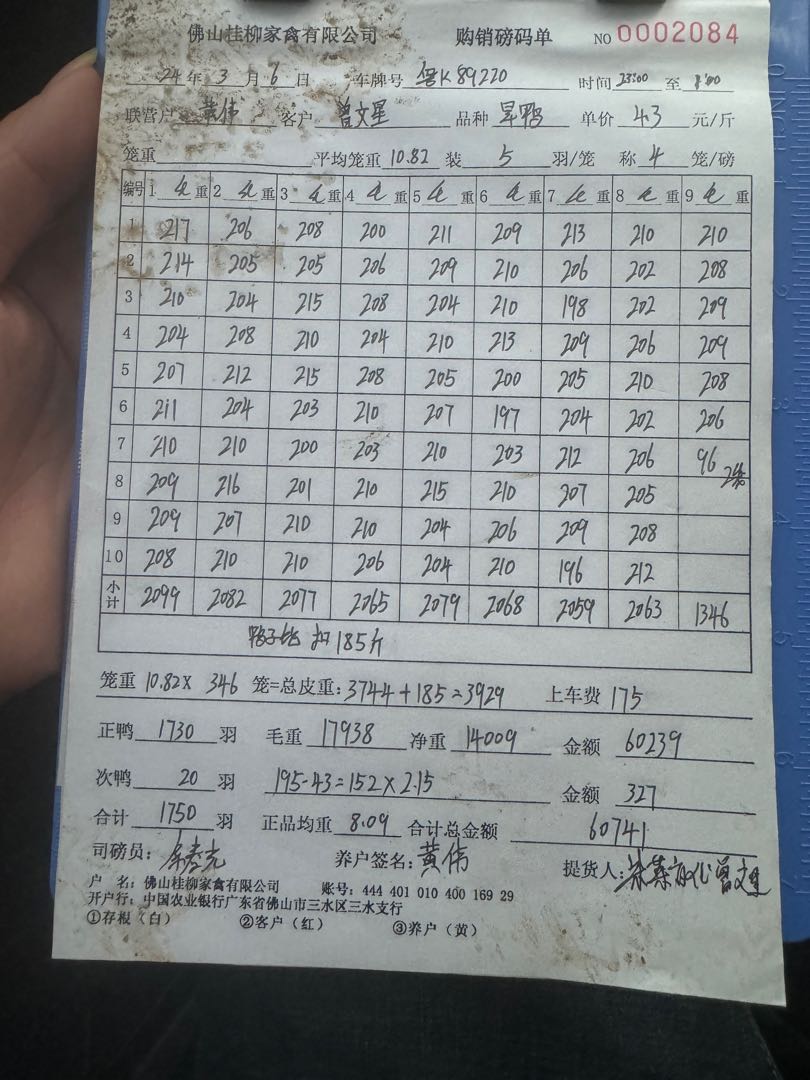 佛山桂柳家禽有限公司 购销磅码单 NO 0002084
24年 3月 6日 车牌号 粤K89220 时间 23:00 至 1:00
联营户 黄伟 客户 曾文星 品种 旱鸭 单价 4.3 元/斤
笼重 平均笼重 10.82 装 5 羽/笼 称 4 笼/磅
编号 1 毛 重 2 毛 重 3 毛 重 4 毛 重 5 毛 重 6 毛 重 7 毛 重 8 毛 重 9 毛 重
1 217 206 208 200 211 209 213 210 210
2 214 205 205 206 209 210 206 202 208
3 210 204 215 208 204 210 198 202 209
4 204 208 210 204 210 213 209 206 209
5 207 212 215 208 205 200 205 210 208
6 211 204 203 210 207 197 204 202 206
7 210 210 200 203 210 203 212 206 96 2笼
8 209 216 201 210 215 210 207 205
9 209 207 210 210 204 206 209 208
10 208 210 210 206 204 210 196 212
小计 2099 2082 2077 2065 2079 2068 2059 2063 1346
鸭子 扣185斤
笼重 10.82× 346 笼=总皮重:3744+185=3929 上车费 175
正鸭 1730 羽 毛重 17938 净重 14009 金额 60239
次鸭 20 羽 195-43=152×2.15 金额 327
合计 1750 羽 正品均重 8.09 合计总金额 60741
司磅员: 养户签名: 黄伟 提货人: 代曾文星
户 名:佛山桂柳家禽有限公司 账号:444 401 010 400 169 29
开户行:中国农业银行广东省佛山市三水区三水支行
①存根(白) ②客户(红) ③养户(黄)